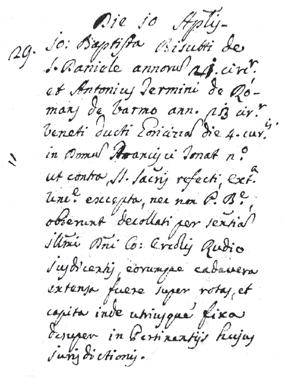 Die 30 Aplis
29. Jo: Baptista Bisutti de
S. Daniele annorum 24. circr.
et Antonius Termini de Ro-
mans de Varmo ann. 23 circr.
Veneti ducti die 4. curtis
in Domus Francisci Donat no.
ut contra SS. sacris refecti, extra
unct. excepta, nec non P. Be.
obierunt decollati per sentias
Illmi Dni Co:
jusdicentis, eorumque cadavera
extensa fuere super rotas, et
capita inde utriusque fixa
desuper in Pertinentiis hujus
jurisdictionis.